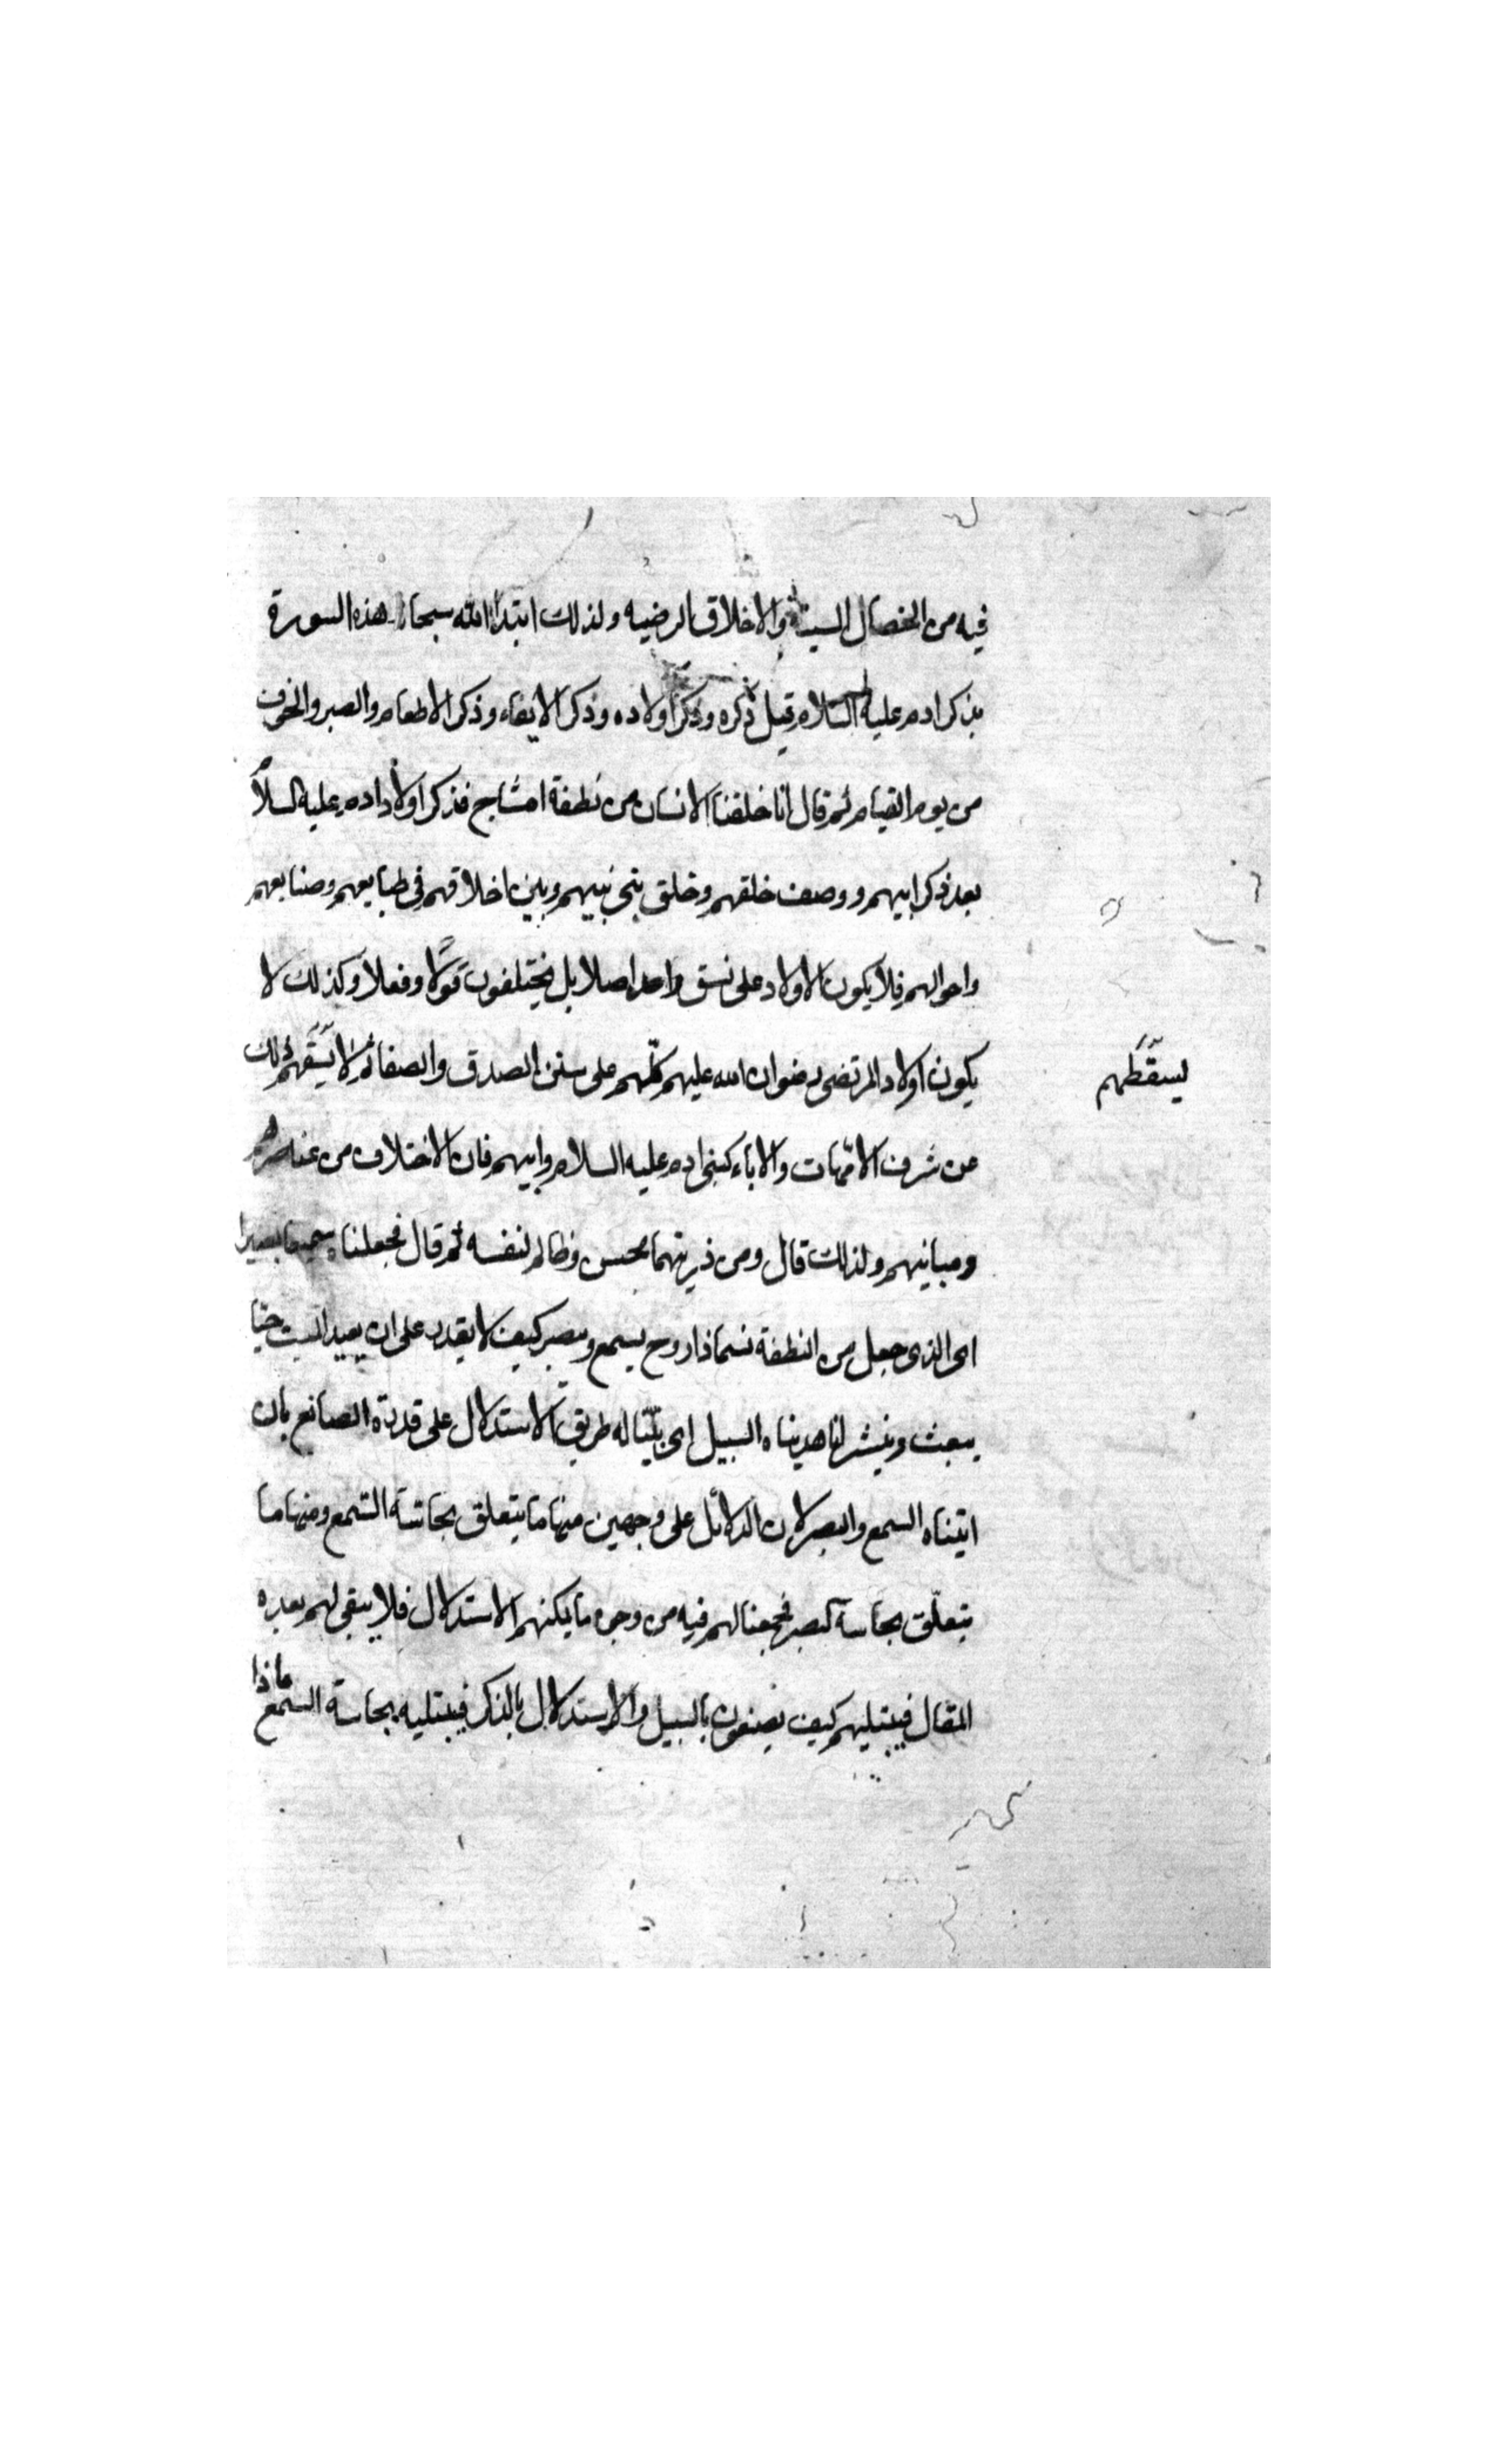 فيه من الخصال السنية والاخلاق الرضيه ولذلك ابتدا الله سبحانه هذه السورة
بذكر ادم عليه السلام قبل ذكره وذكر اولاده وذكر الايفاء وذكر الاطعام والصبر والخوف
من يوم القيام ثم قال انا خلقنا الانسان من نطفة امشاج فذكر اولاد ادم عليه السلام
بعد ذكر ابيهم ووصف خلقهم وخلق بني بنيهم وبين اخلاقهم في طبايعهم وصنايعهم
واحوالهم فلا يكون الاولاد على نسق واحد اصلا بل يختلفون قولا وفعلا وكذلك لا
يكون اولاد المرتضى رضوان الله عليهم كلهم على سنن الصدق والصفا ثم لا ذلك
ليسقطهم
عن شرف الامهات والاباء كبنى ادم عليه السلام وابيهم فان الاختلاف من عناصرهم
ومبانيهم ولذلك قال ومن ذريتهما محسن وظالم لنفسه ثم قال فجعلناه سميعا بصيرا
اى الذى جعل من النطفة نسما ذا روح يسمع ويبصر كيف لا يقدر على ان يعيد الميت حيّا
يبعث وينشر انا هديناه السبيل اى بيّنا له طريق الاستدلال على قدرة الصانع بان
اتيناه السمع والبصر لان الدلائل على وجهين منها ما يتعلق بحاسة السمع ومنها ما
يتعلّق بحاسة البصر فجمعنا لهم فيه من وجوه ما يمكنهم الاستدلال فلا يبقى لهم بعده
المقال فيبتليهم كيف يصنعون بالسبيل والاستدلال بالذكر فيبتليه بحاسة السمع ماذا